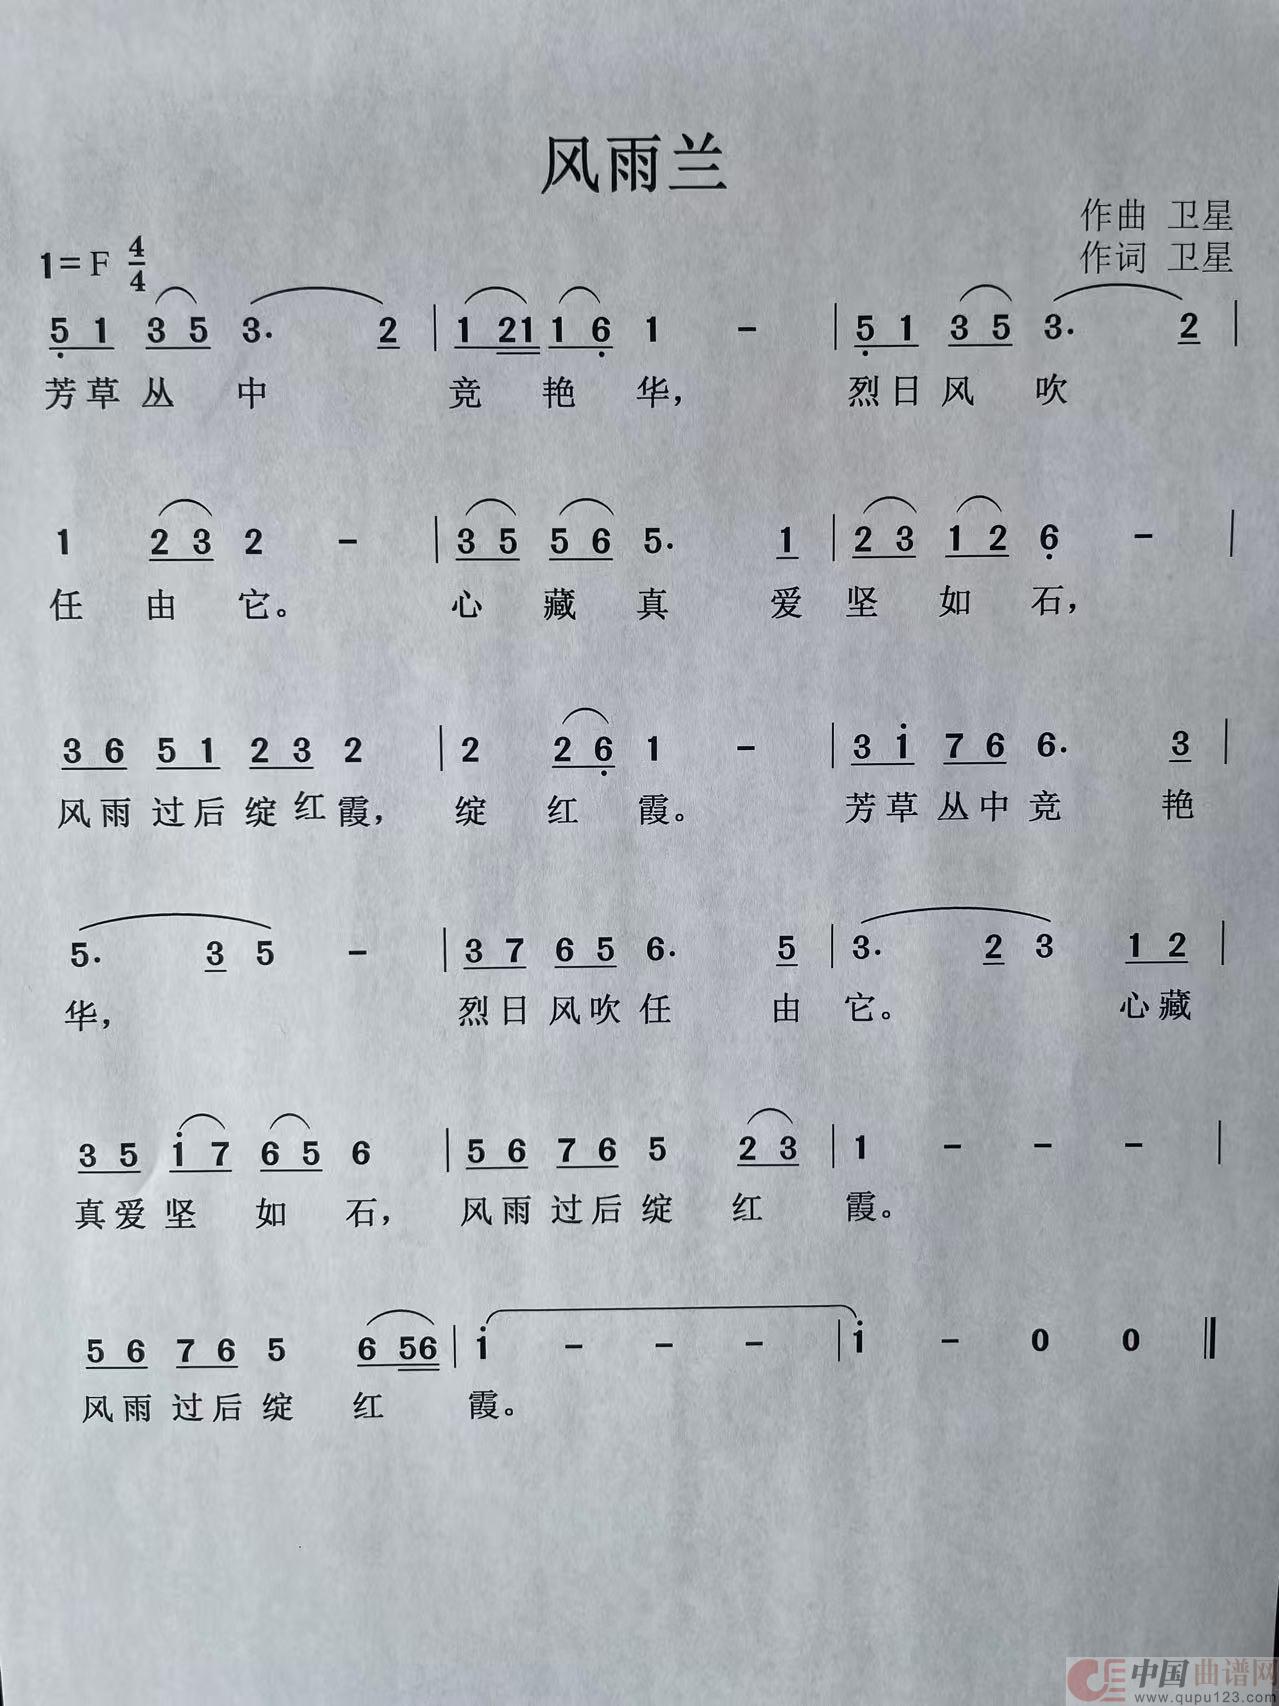 风雨兰
作曲 卫星
1=F 4/4
作词 卫星
5 1 3 5 3. 2 | 1 21 1 6 1 - | 5 1 3 5 3. 2 |
芳草丛中 竞艳华，烈日风吹
1 2 3 2 - | 3 5 5 6 5. 1 | 2 3 1 2 6 - |
任由它。心藏真爱坚如石，
3 6 5 1 2 3 2 | 2 2 6 1 - | 3 i 7 6 6. 3 |
风雨过后绽红霞，绽红霞。芳草丛中竞艳
5. 3 5 - | 3 7 6 5 6. 5 | 3. 2 3 1 2 |
华，烈日风吹任由它。心藏
3 5 i 7 6 5 6 | 5 6 7 6 5 2 3 | 1 - - - |
真爱坚如石，风雨过后绽红霞。
5 6 7 6 5 6 56 | i - - - | i - 0 0 ‖
风雨过后绽红霞。
中国曲谱网
www.qupu123.com